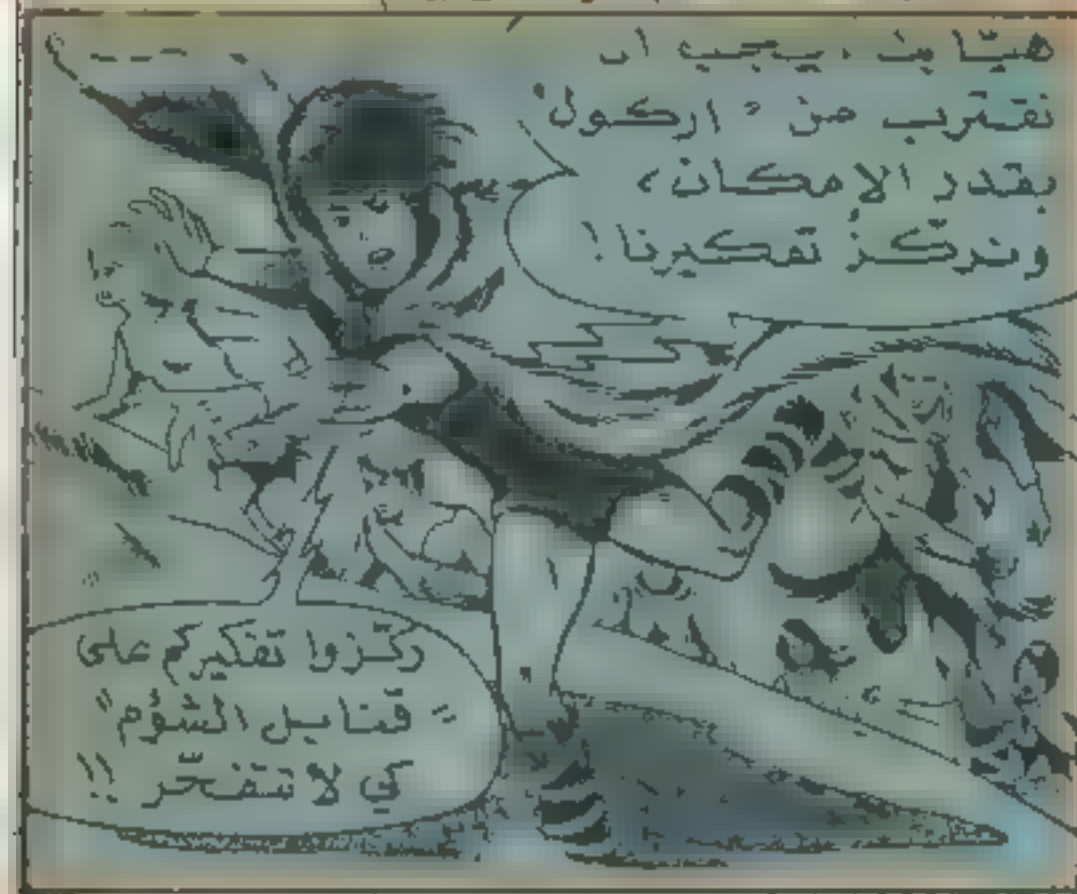 هيّا بنا ، يجب ان
نقترب من " اركول "
بقدر الامكان ،
ونركّز تفكيرنا !
ركّزوا تفكيركم على
" قنابل الشؤم "
كي لا تنفجّر !!